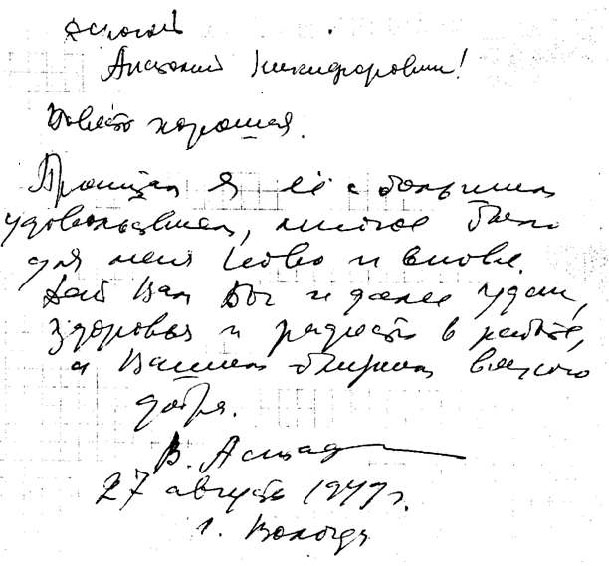 Дорогой
Анатолий Никифорович!
Повесть хорошая.
Прочитал я её с большим
удовольствием, многое было
для меня ново и вновь.
Дай Вам Бог и далее удачи,
здоровья и радости в работе,
а Вашим ближним всякого
добра.
В. Астаф
27 августа 1979 г.
г. Вологда